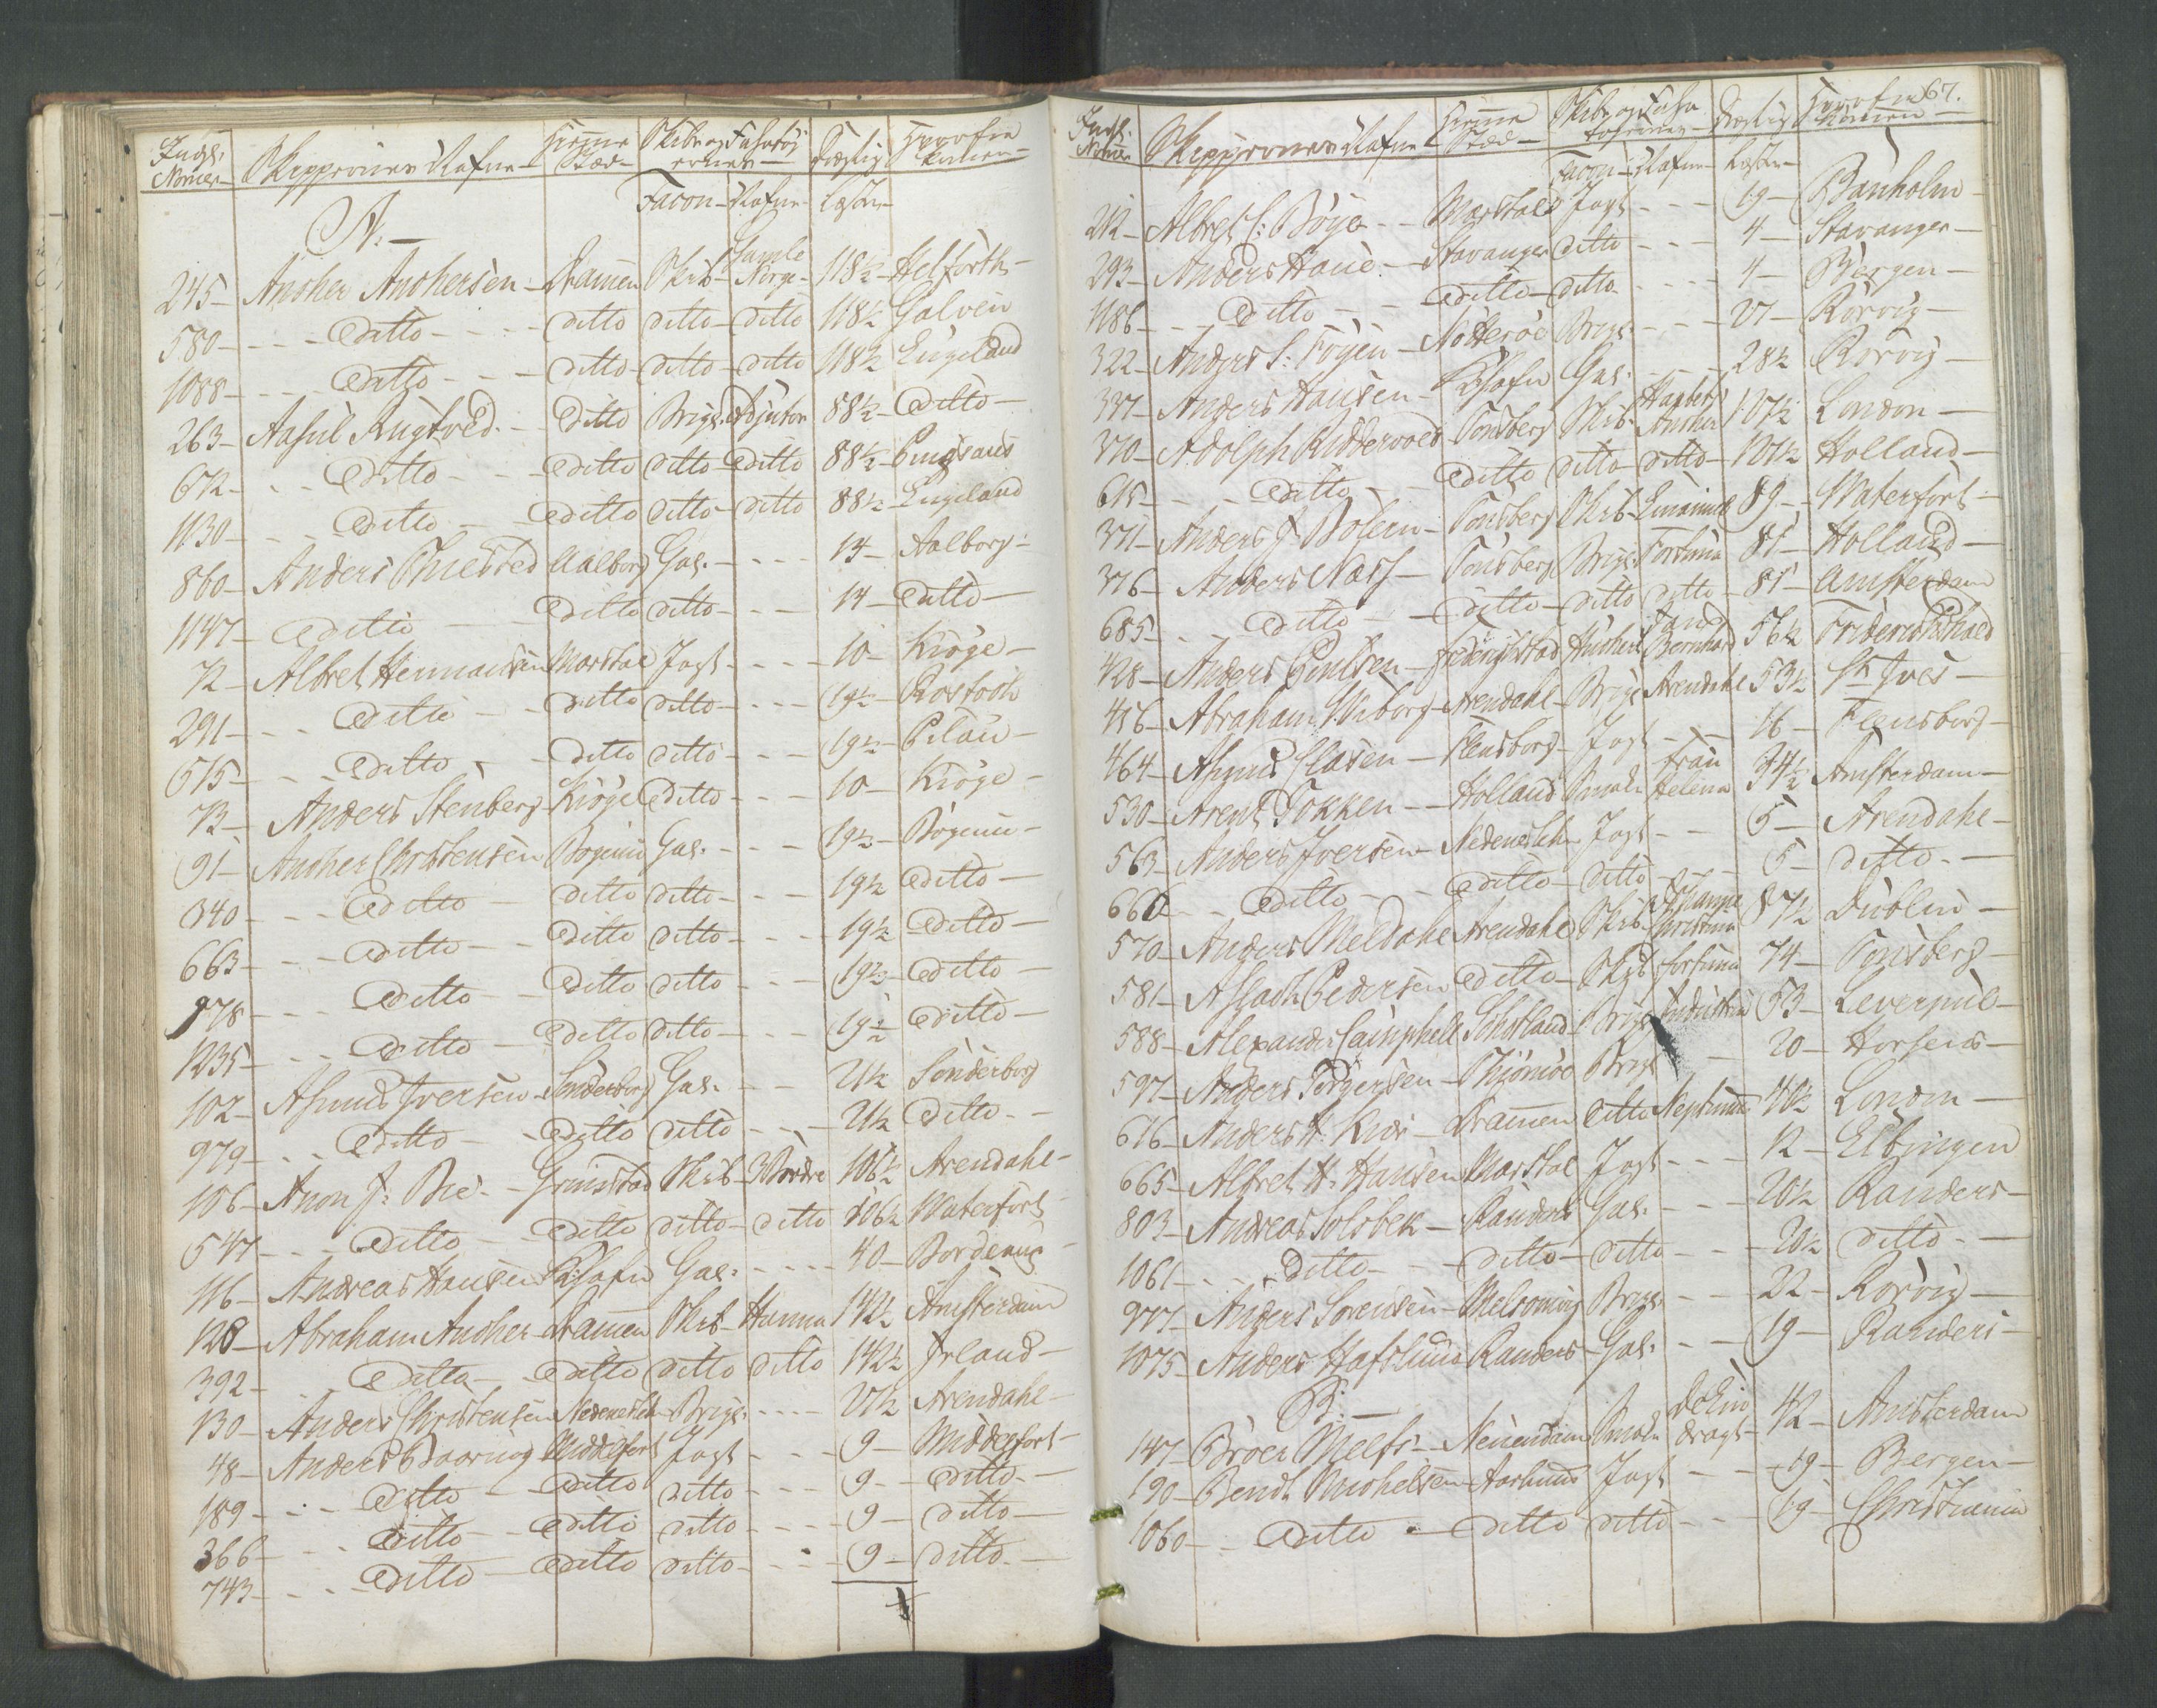 Skippernes Nafne
Facon Nafne Læster
A.
245 Ancher Anchersen Dramen Skib Gamle Norge 118½
580 Ditto ditto ditto ditto 118½
1088 Ditto ditto ditto ditto 118½ Engeland
263 Ditto Brig 88½ Ditto
672 Ditto Ditto ditto Ditto 88½
1130 Ditto Ditto ditto ditto 88½ Engeland
860 Anders Thiested Aalborg Gal. 14 Aalborg
1147 Ditto Ditto ditto 14 Ditto
72 Albret Hermansen Marstal Jagt 10 Kiöge
291 Ditto ditto ditto 19½ Rostock
515 Ditto ditto ditto 19½ Pilau
73 Anders Stenberg Kiöge Ditto 10 Kiöge
91 Ancher Christensen Gal. 19½
340 Ditto ditto ditto 19½ Ditto
663 Ditto Ditto ditto 19½ Ditto
978 Ditto Ditto ditto 19½ Ditto
1235 Ditto Ditto ditto 19½ Ditto
102 Asmus Iversen Sonderborg Gal. 21½ Sönderborg
979 Ditto Ditto ditto 21½ Ditto
106 Anon J: Bie Grimstad Skib 3 Brödre 106½ Arendahl
547 Ditto Ditto ditto ditto 106½ Waterfort
116 Andreas Hansen Kbhafn Gal. 40 Bordeaux
128 Abraham Ancher Dramen Skib Hanna 142½ Amsterdam
392 Ditto Ditto ditto ditto 142½ Irland
130 Anders Christensen Brig. 27½ Arendahl
48 Anders Middelfart Jagt 9 Middelfart
189 Ditto Ditto ditto 9 Ditto
366 Ditto Ditto ditto 9 ditto
743 Ditto Ditto ditto 9 ditto
67.
Skippernes Nafne
Facon Nafne Læster
212 Albret C: Böye Marstal Jagt 19 Banholm
293 Anders Haue Stavanger ditto 4 Stavanger
1186 Ditto Ditto ditto 4 Bergen
322 Anders S: Foyen Nötteröe Brig 27 Rörvig
337 Anders Hansen Kbhafn Gal. 28½ Rorvig
370 Adolph Riddervold Tonsberg Skib Haabets Ancker 107½ London
615 Ditto Ditto ditto ditto 107½ Holland
371 Anders J Bolern Tonsberg Skib Emanuel 89 Waterfort
376 Anders Næss Tonsberg Brig Fortuna 81 Holland
685 Ditto Ditto ditto ditto 81 Amsterdam
428 Anders Poulsen Friderichstad Bernhard 56½ Friderichshald
456 Abraham Wiborg Arendahl Brig Arendahl 53½ St Ives
464 Asmus Clasen Flensborg Jagt 16 Flensborg
530 Arent Fokken Holland Smak Frau Helena 34½ Amsterdam
563 Anders Iversen Jagt 5 Arendahl
660 Ditto Ditto ditto 5 ditto
570 Anders Meldahl Arendahl Skib Johanna Christina 87½ Dublin
581 Aslach Pedersen Ditto Skib Fortuna 74 Tonsberg
588 Alexander Camphell Schotland Brig Industri 53 Leverpul
597 Anders Torgersen Brig 20 Horsens
616 Anders H. Dramen ditto Neptunus 40½ London
665 Albret H. Hansen Marstal Jagt 12 Elbingen
803 Andreas Solsbek Randers Gal. 20½ Randers
1061 Ditto Ditto ditto 20½ ditto
977 Anders Sorensen Brig. 22 Rorvig
1075 Anders Hafslund Randers Gal. 19 Randers
B.
147 Broer Melfs Neuendam Smak De Eindragt 42 Amsterdam
190 Bendt Michelsen Aarhuus Jagt 19 Bergen
1060 Ditto ditto ditto 19 Christiania